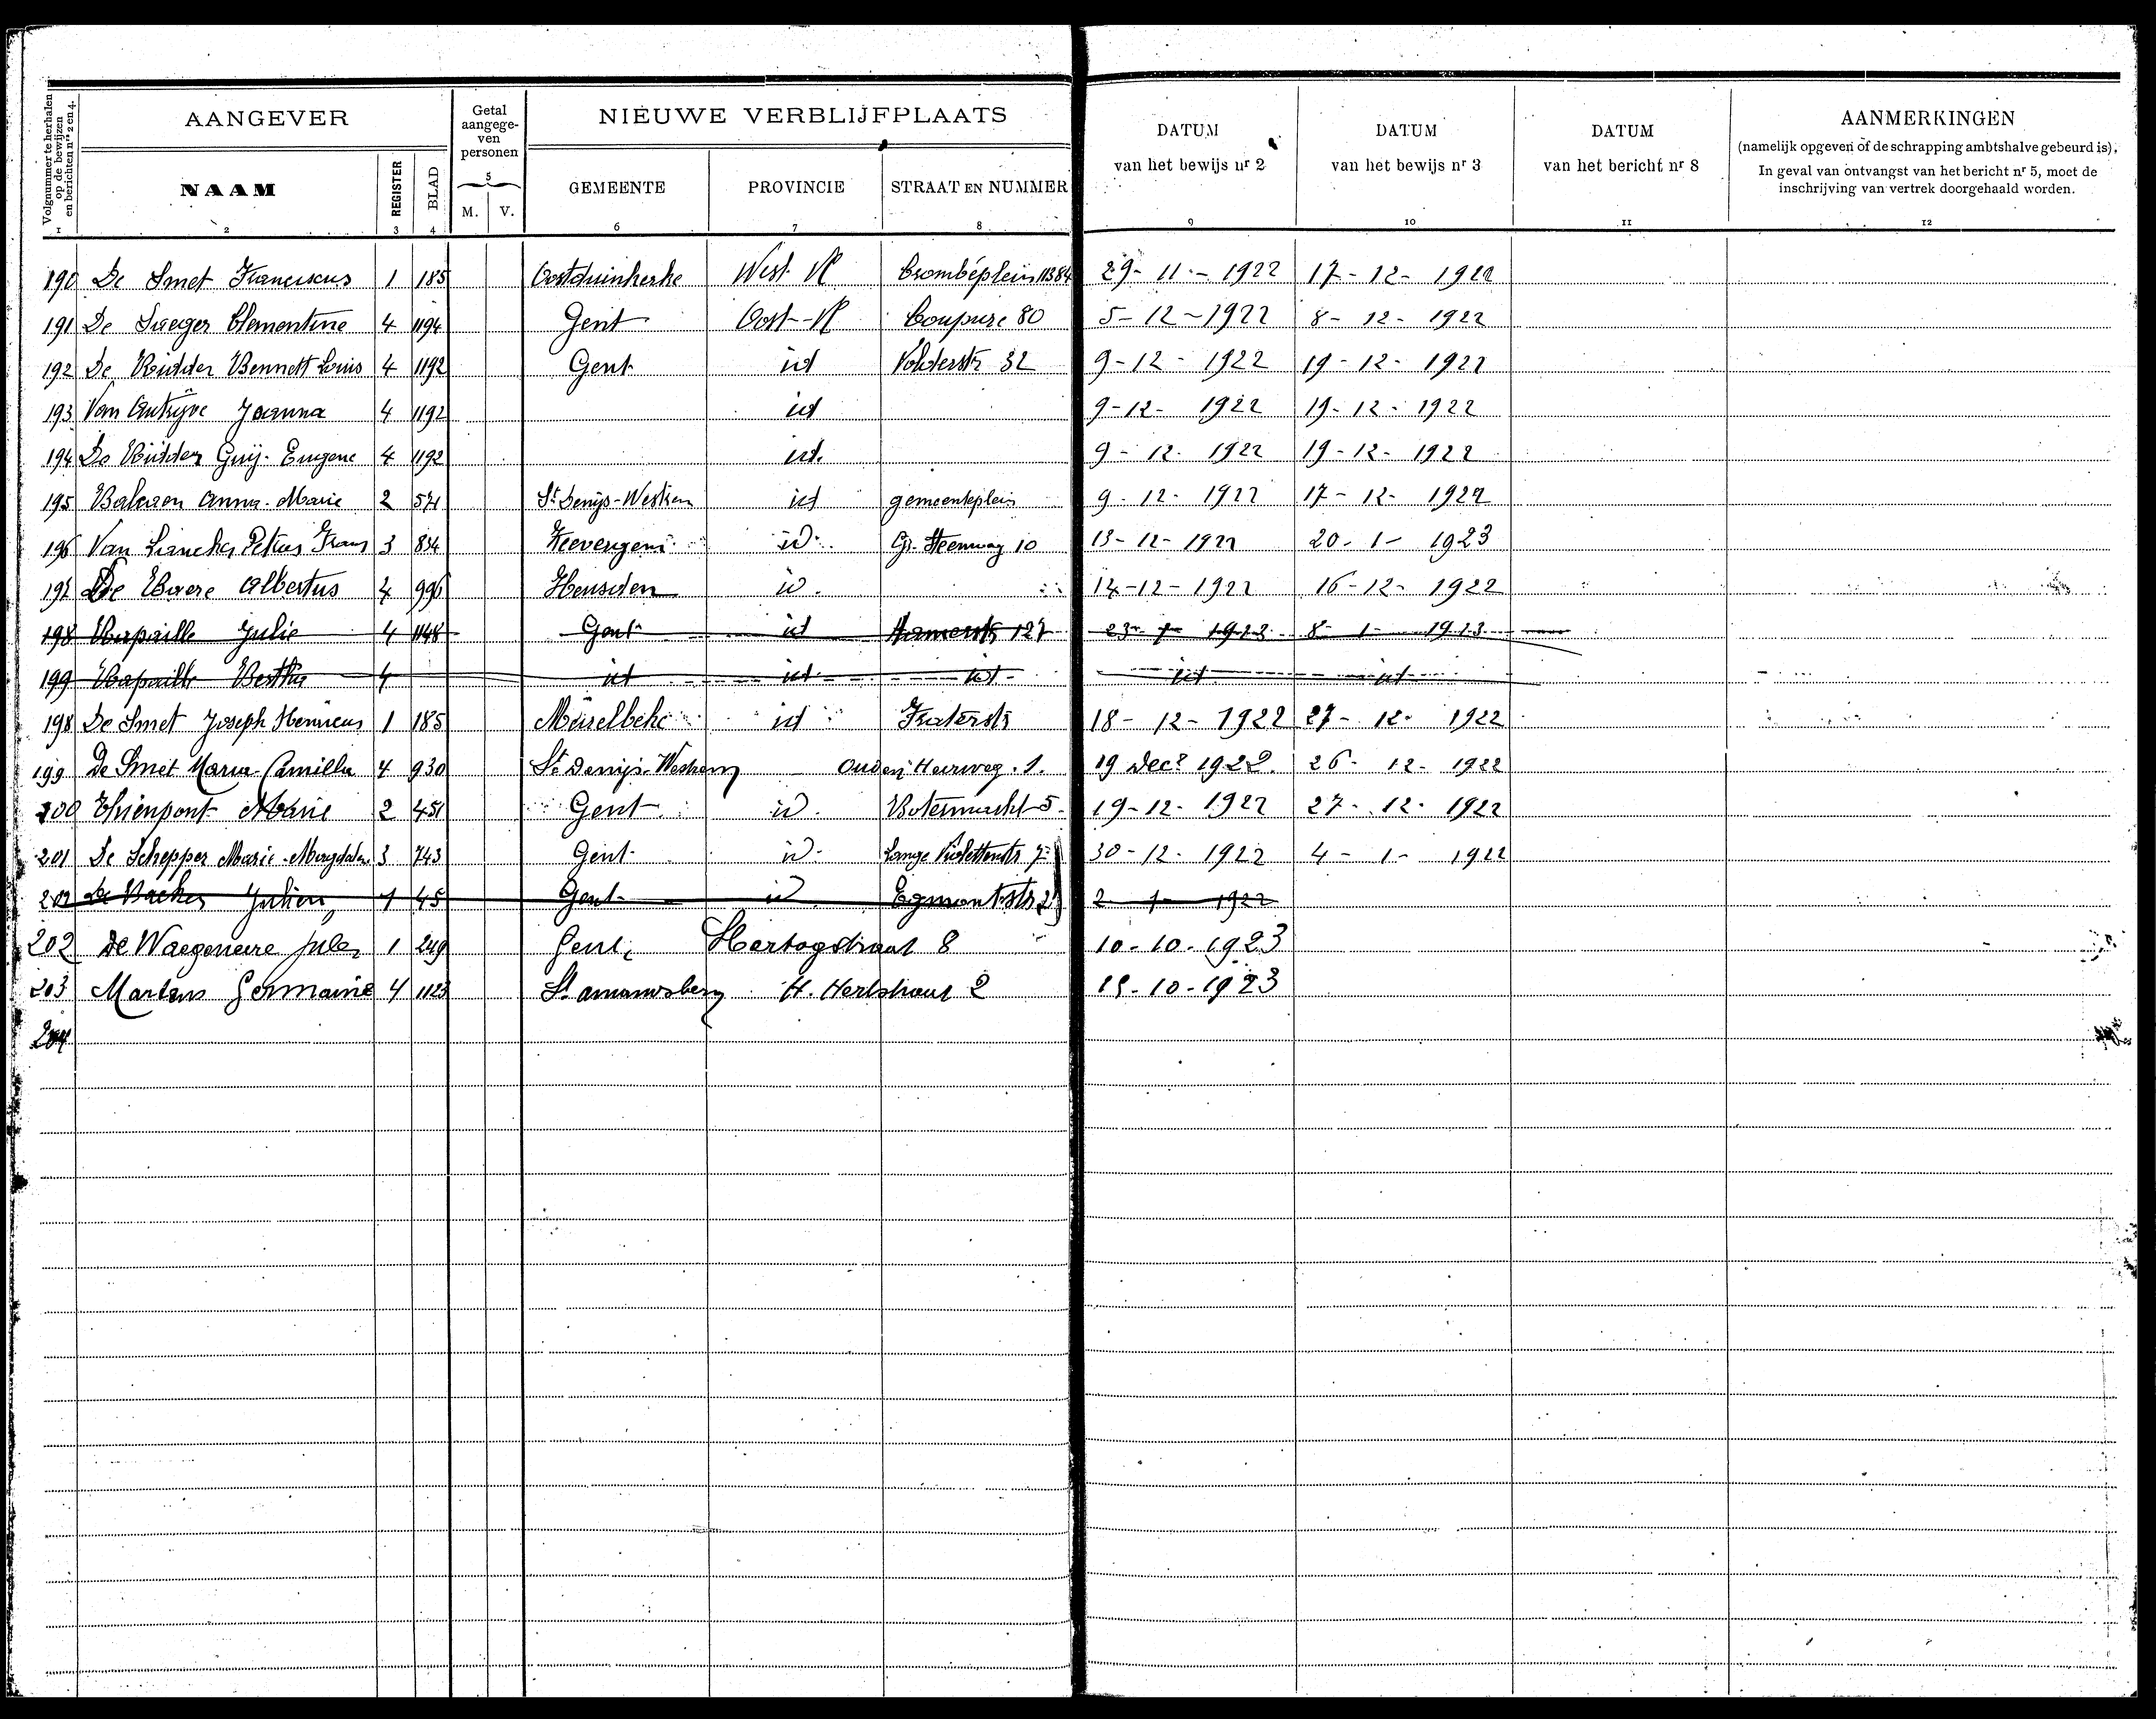 Volgnummer te herhalen op de bewijzen en berichten nrs 2 en 4.
AANGEVER
Getal aangege-ven personen
NIEUWE VERBLIJFPLAATS
DATUM van het bewijs nr 2
DATUM van het bewijs nr 3
DATUM van het bericht nr 8
AANMERKINGEN
(namelijk opgeven of de schrapping ambtshalve gebeurd is).
In geval van ontvangst van het bericht nr 5, moet de
inschrijving van vertrek doorgehaald worden.
NAAM REGISTER BLAD 5 M. V. GEMEENTE PROVINCIE STRAAT EN NUMMER
1 2 3 4 6 7 8 9 10 11 12
190 De Smet Franciscus 1 185 Oostduinkerke West-Vl Crombéplein 11384 29-11-1922 17-12-1922
191 De Saeger Clementine 4 1194 Gent Oost-Vl Coupure 80 5-12-1922 8-12-1922
192 De Ridder Bennett Louis 4 1192 Gent id Volderstr 32 9-12-1922 19-12-1922
193 Van Joanna 4 1192 id 9-12-1922 19-12-1922
194 De Ridder Guij-Eugene 4 1192 id. 9-12-1922 19-12-1922
195 Anna-Marie 2 571 St Denijs-Westrem id gemeenteplein 9-12-1922 17-12-1922
196 Van Petrus Frans 3 834 Zevergem id Gr. Steenweg 10 13-12-1922 20-1-1923
197 De Albertus 4 996 Heusden id. 14-12-1922 16-12-1922
198 Julie 4 1148 Gent id 127 8-1-1923
199 Bertha 4 id id id id id
198 De Smet Joseph Henricus 1 185 Meirelbeke id Fraterstr 18-12-1922 27-12-1922
199 De Smet Maria Camilla 4 930 St Denijs-Westrem Ouden Heirweg. 1. 19 Decr 1922. 26-12-1922
200 Thienpont Marie 2 451 Gent id. Botermarkt 5. 19-12-1922 27-12-1922
201 De Schepper Marie-Magdalena 3 743 Gent id. Lange Violettenstr 7 30-12-1922 4-1-1922
202 De Backer Julien 1 45 Gent id Egmontstr 2-1-1922
202 De Waegeneire Jules 1 249 Gent, Hertogstraat 8 10-10-1923
203 Martens Germaine 4 1123 St amandsberg H. Hertstraat 2 15-10-1923
204